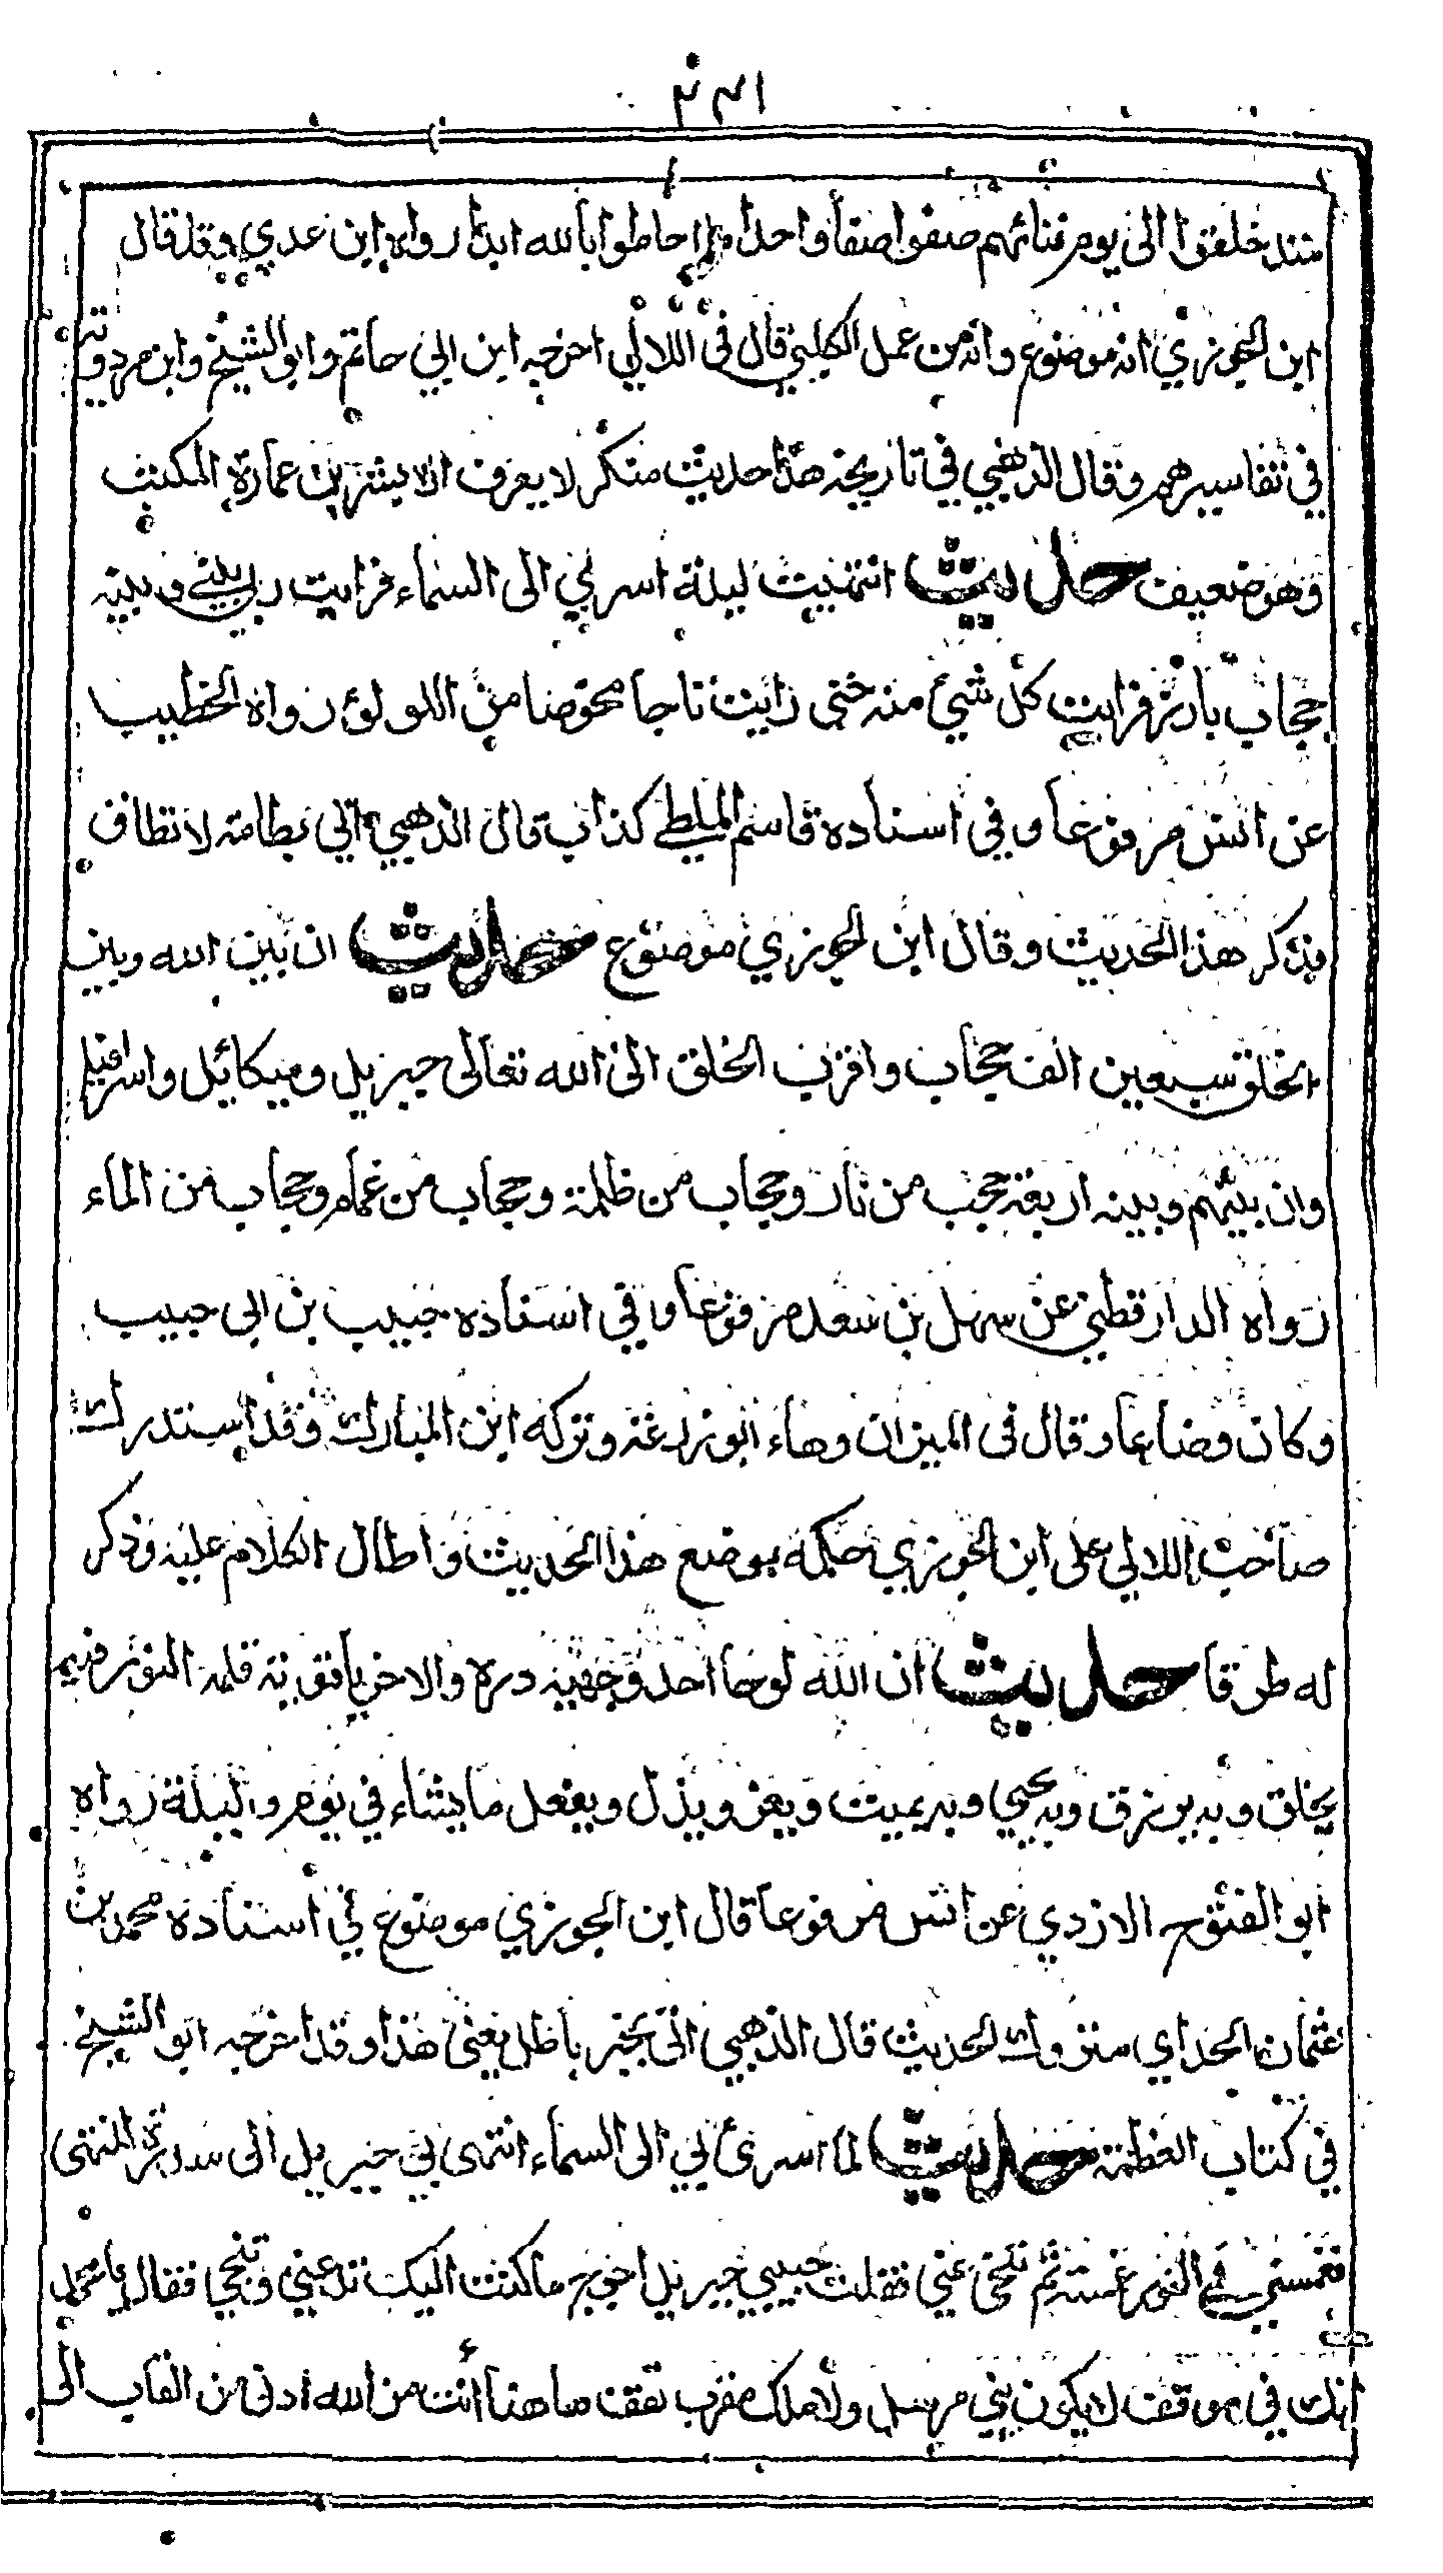 منذ خلقوا الى يوم فنائهم صفوا صفا واحدا ما احاطوا بالله ابدا رواه ابن عدي وقد قال
ابن الجوزي انه موضوع وانه من عمل الكلبي قال في اللآلي اخرجه ابن ابي حاتم وابو الشيخ وابن مردويه
في تفاسيرهم وقال الذهبي في تاريخه هذا حديث منكر لا يعرف الا ببشر بن عمارة المكتب
وهو ضعيف حديث انتهيت ليلة اسري بي الى السماء فرايت ربي بيني وبينه
حجاب بارز فرايت كل شيئ منه حتى رايت تاجا مخوضا من اللولؤ رواه الخطيب
عن انس مرفوعا وفي اسناده قاسم الملطي كذاب قال الذهبي اتى بطامة لا تطاق
فذكر هذا الحديث وقال ابن الجوزي موضوع حديث ان بين الله وبين
الخلق سبعين الف حجاب واقرب الخلق الى الله تعالى جبريل وميكائيل واسرافيل
وان بينهم وبينه اربعة حجب من نار وحجاب من ظلمة وحجاب من غمام وحجاب من الماء
رواه الدارقطني عن سهل بن سعد مرفوعا وفي اسناده حبيب بن ابي حبيب
وكان وضاعا وقال في الميزان وهاه ابو زرعة وتركه ابن المبارك وقد استدرك
صاحب اللالي على ابن الجوزي حكمه بوضع هذا الحديث واطال الكلام عليه وذكر
له طرقا حديث ان الله لوحا احد وجهيه درة والاخر ياقوتة قلمه النور فبه
يخلق وبه يرزق وبه يحيي وبه يميت ويعز ويذل ويفعل ما يشاء في يوم وليلة رواه
ابو الفتوح الازدي عن انس مرفوعا قال ابن الجوزي موضوع في اسناده محمد بن
عثمان الحداي متروك الحديث قال الذهبي اتى بخبر باطل يعني هذا وقد اخرجه ابو الشيخ
في كتاب العظمة حديث لما اسرى بي الى السماء انتهى بي جبريل الى سدرة المنتهى
فغمسني في النور غمسة ثم تنحى عني فقلت حبيبي جبريل احوج ما كنت اليك تدعني وتنحي فقال يا محمد
انك في موقف لا يكون نبي مرسل ولا ملك مقرب تقف هاهنا أنت من الله ادنى من القاب الى